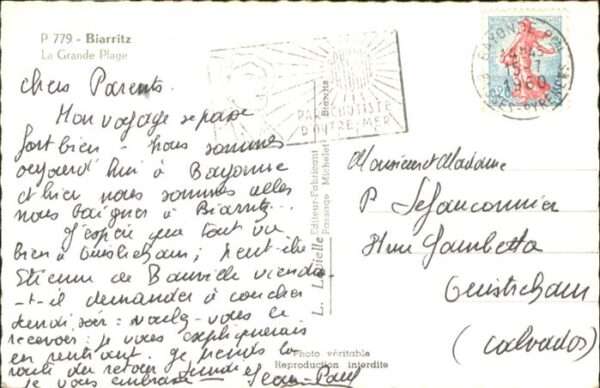 P 779 - Biarritz
La Grande Plage
BAYONNE PPL
14H45
15-7
1960
0,20
PARACHUTISTE
D'OUTRE-MER
chers Parents.
Mon voyage se passe
fort bien - nous sommes
aujourd'hui à Bayonne
et hier nous sommes allés
nous baigner à Biarritz...
J'espère que tout va
bien à Ouistreham ; peut-être
Etienne de Banville viendra
-t-il demander à coucher
: voulez-vous le
recevoir : je vous expliquerais
en rentrant. Je prends la
route du retour
je vous embrasse Jean-Paul
L. Editeur-Fabricant
Passage Michelet - Biarritz
Photo véritable
Reproduction interdite
Monsieur et Madame
P Lefauconnier
rue Gambetta
Ouistreham
(Calvados)